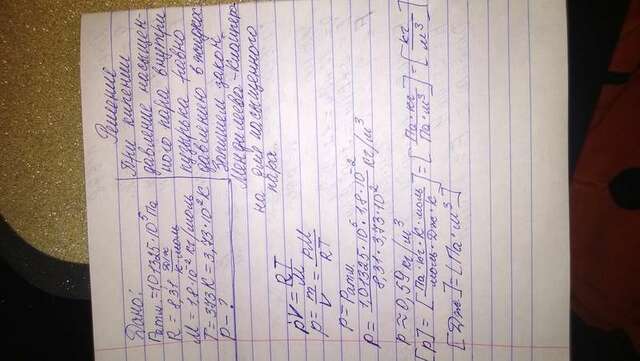 Дано:
Pатм = 1,01325·10⁵ Па
R = 8,31 Дж/К·моль
M = 1,8·10⁻² кг/моль
T = 373 К = 3,73·10² К
ρ - ?
Решение
При кипении
давление насыщен-
ного пара внутри
пузырька равно
давлению в жидкос-
Запишем закон
Менделеева-Клапейр-
на для насыщенного
пара.
pV = RT
ρ = m/V = pM/RT
p = Pатм
ρ = 1,01325·10⁵·1,8·10⁻² / 8,31·3,73·10² кг/м³
ρ ≈ 0,59 кг/м³
[ρ] = [Па·кг·К·моль / моль·Дж·К] = [Па·кг / Па·м³] = [кг / м³]
[Дж] = [Па·м³]